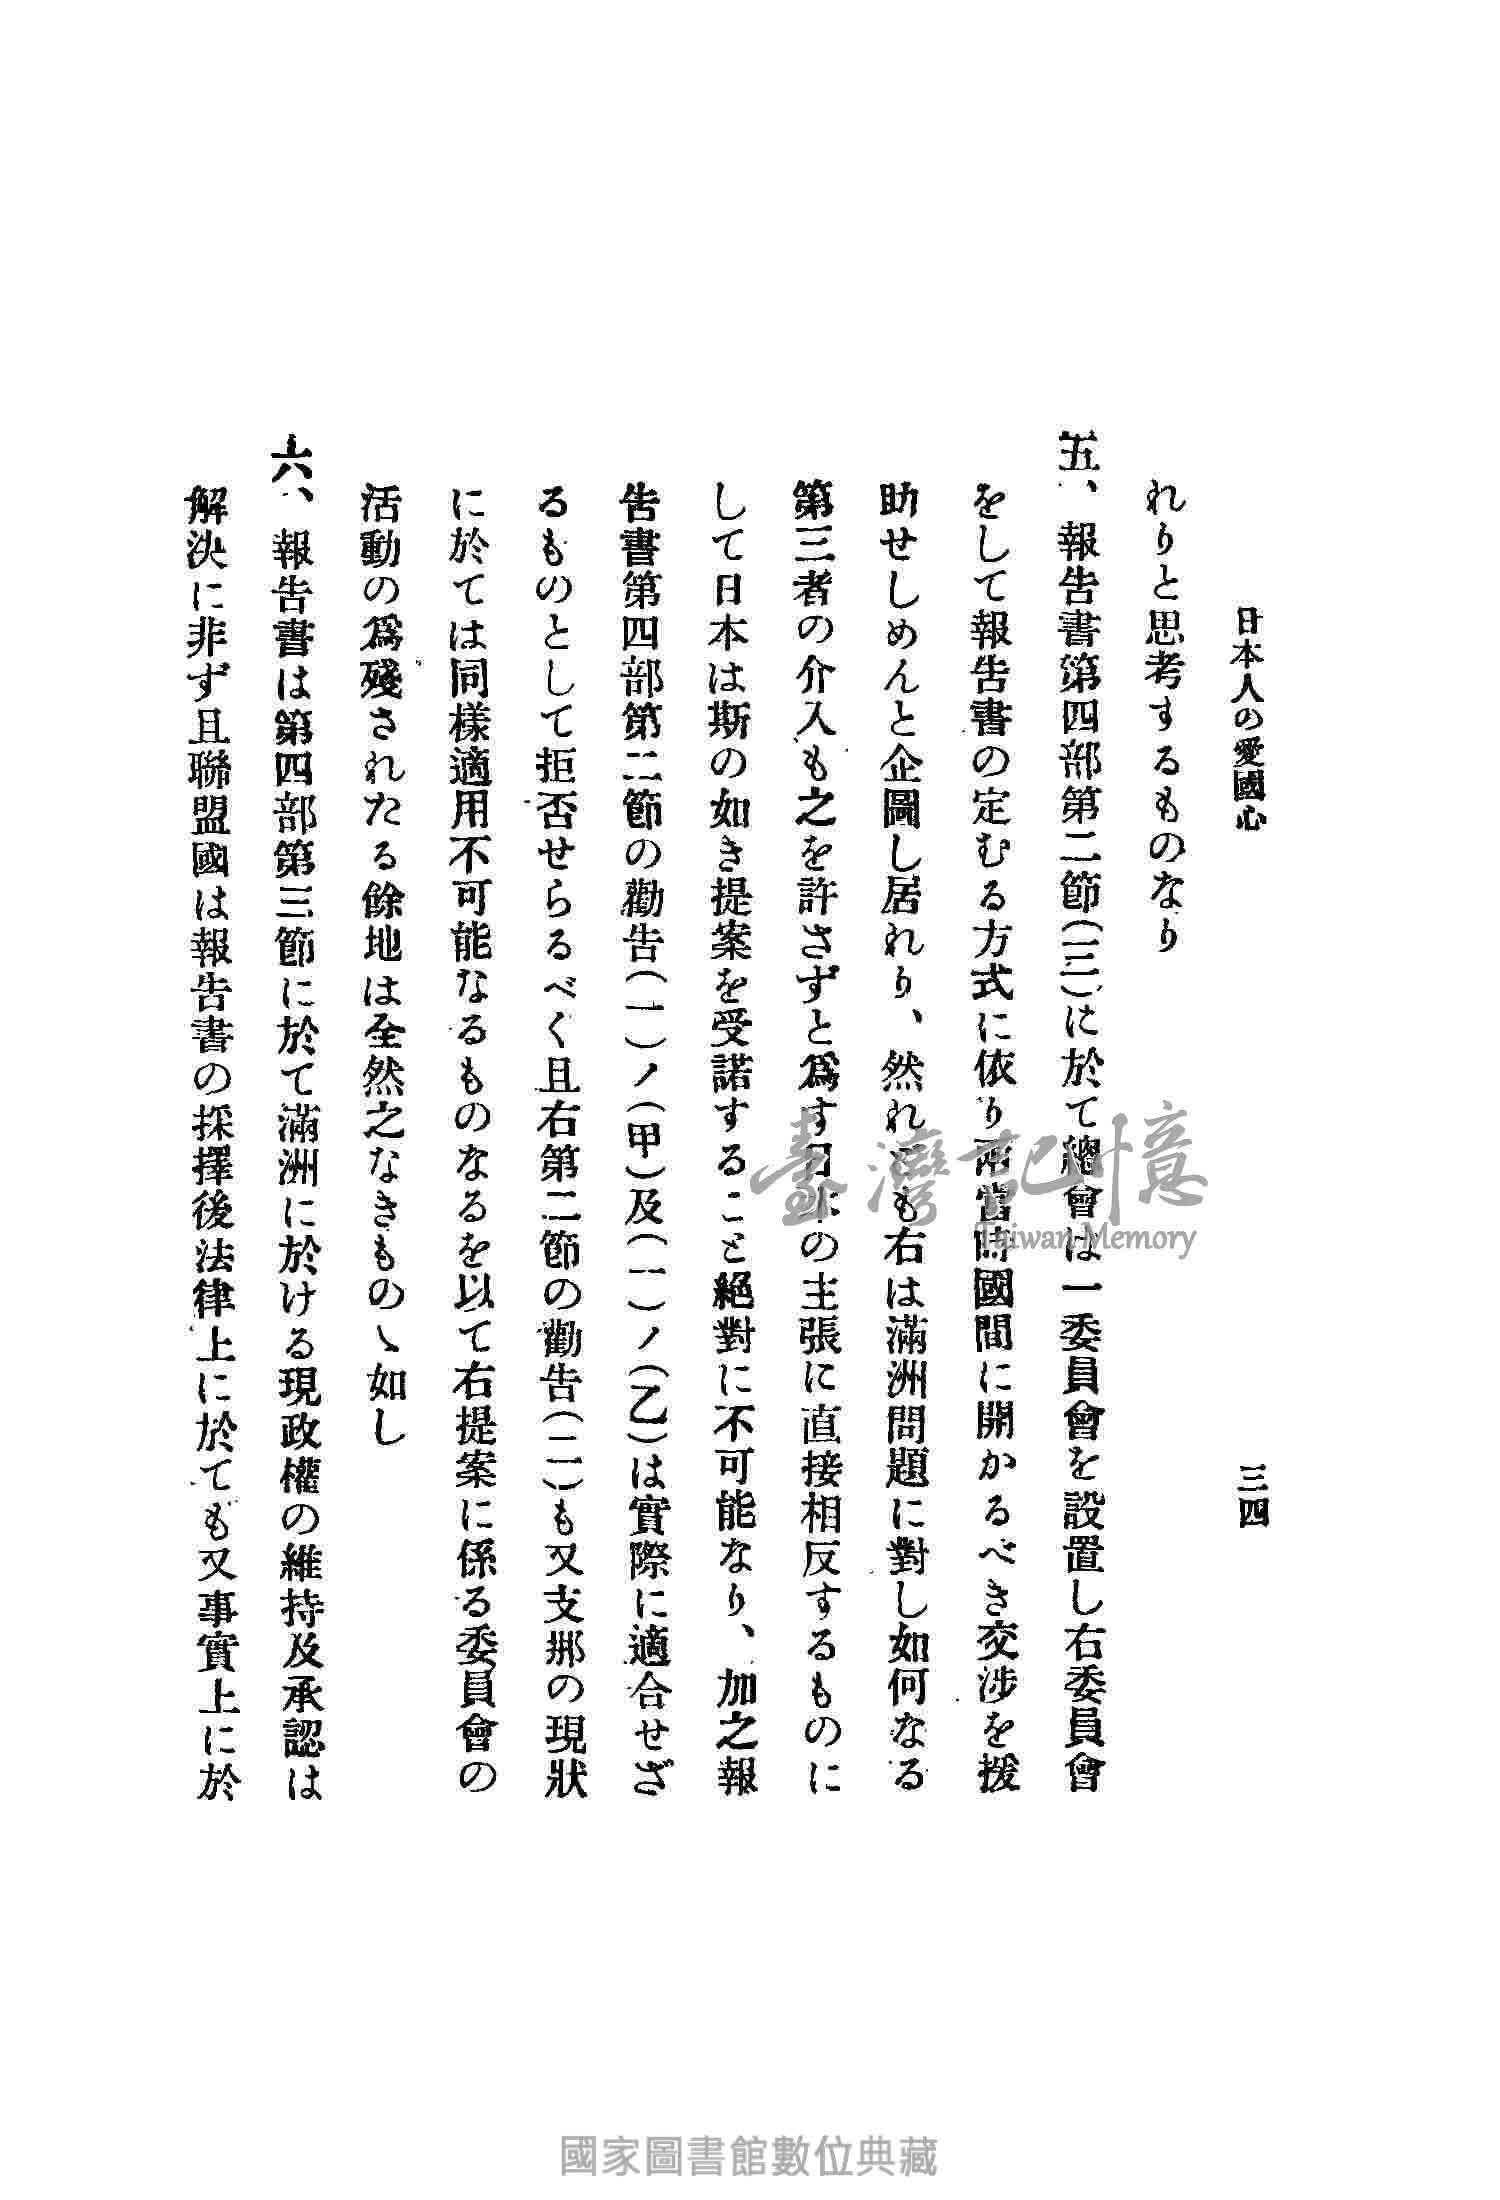 日本人の愛國心
三四
れりと思考するものなり
五、報告書第四部第二節(三)に於て總會は一委員會を設置し右委員會
をして報告書の定むる方式に依り兩當時國間に開かるべき交涉を援
助せしめんと企圖し居れり、然れども右は滿洲問題に對し如何なる
第三者の介入も之を許さずと爲す日本の主張に直接相反するものに
して日本は斯の如き提案を受諾すること絕對に不可能なり、加之報
告書第四部第二節の勸告(一)ノ(甲)及(一)ノ(乙)は實際に適合せざ
るものとして拒否せらるべく且右第二節の勸告(二)も又支那の現狀
に於ては同樣適用不可能なるものなるを以て右提案に係る委員會の
活動の爲殘されたる餘地は全然之なきものゝ如し
六、報告書は第四部第三節に於て滿洲に於ける現政權の維持及承認は
解決に非ず且聯盟國は報告書の採擇後法律上に於ても又事實上に於
臺灣記憶
Taiwan Memory
國家圖書館數位典藏